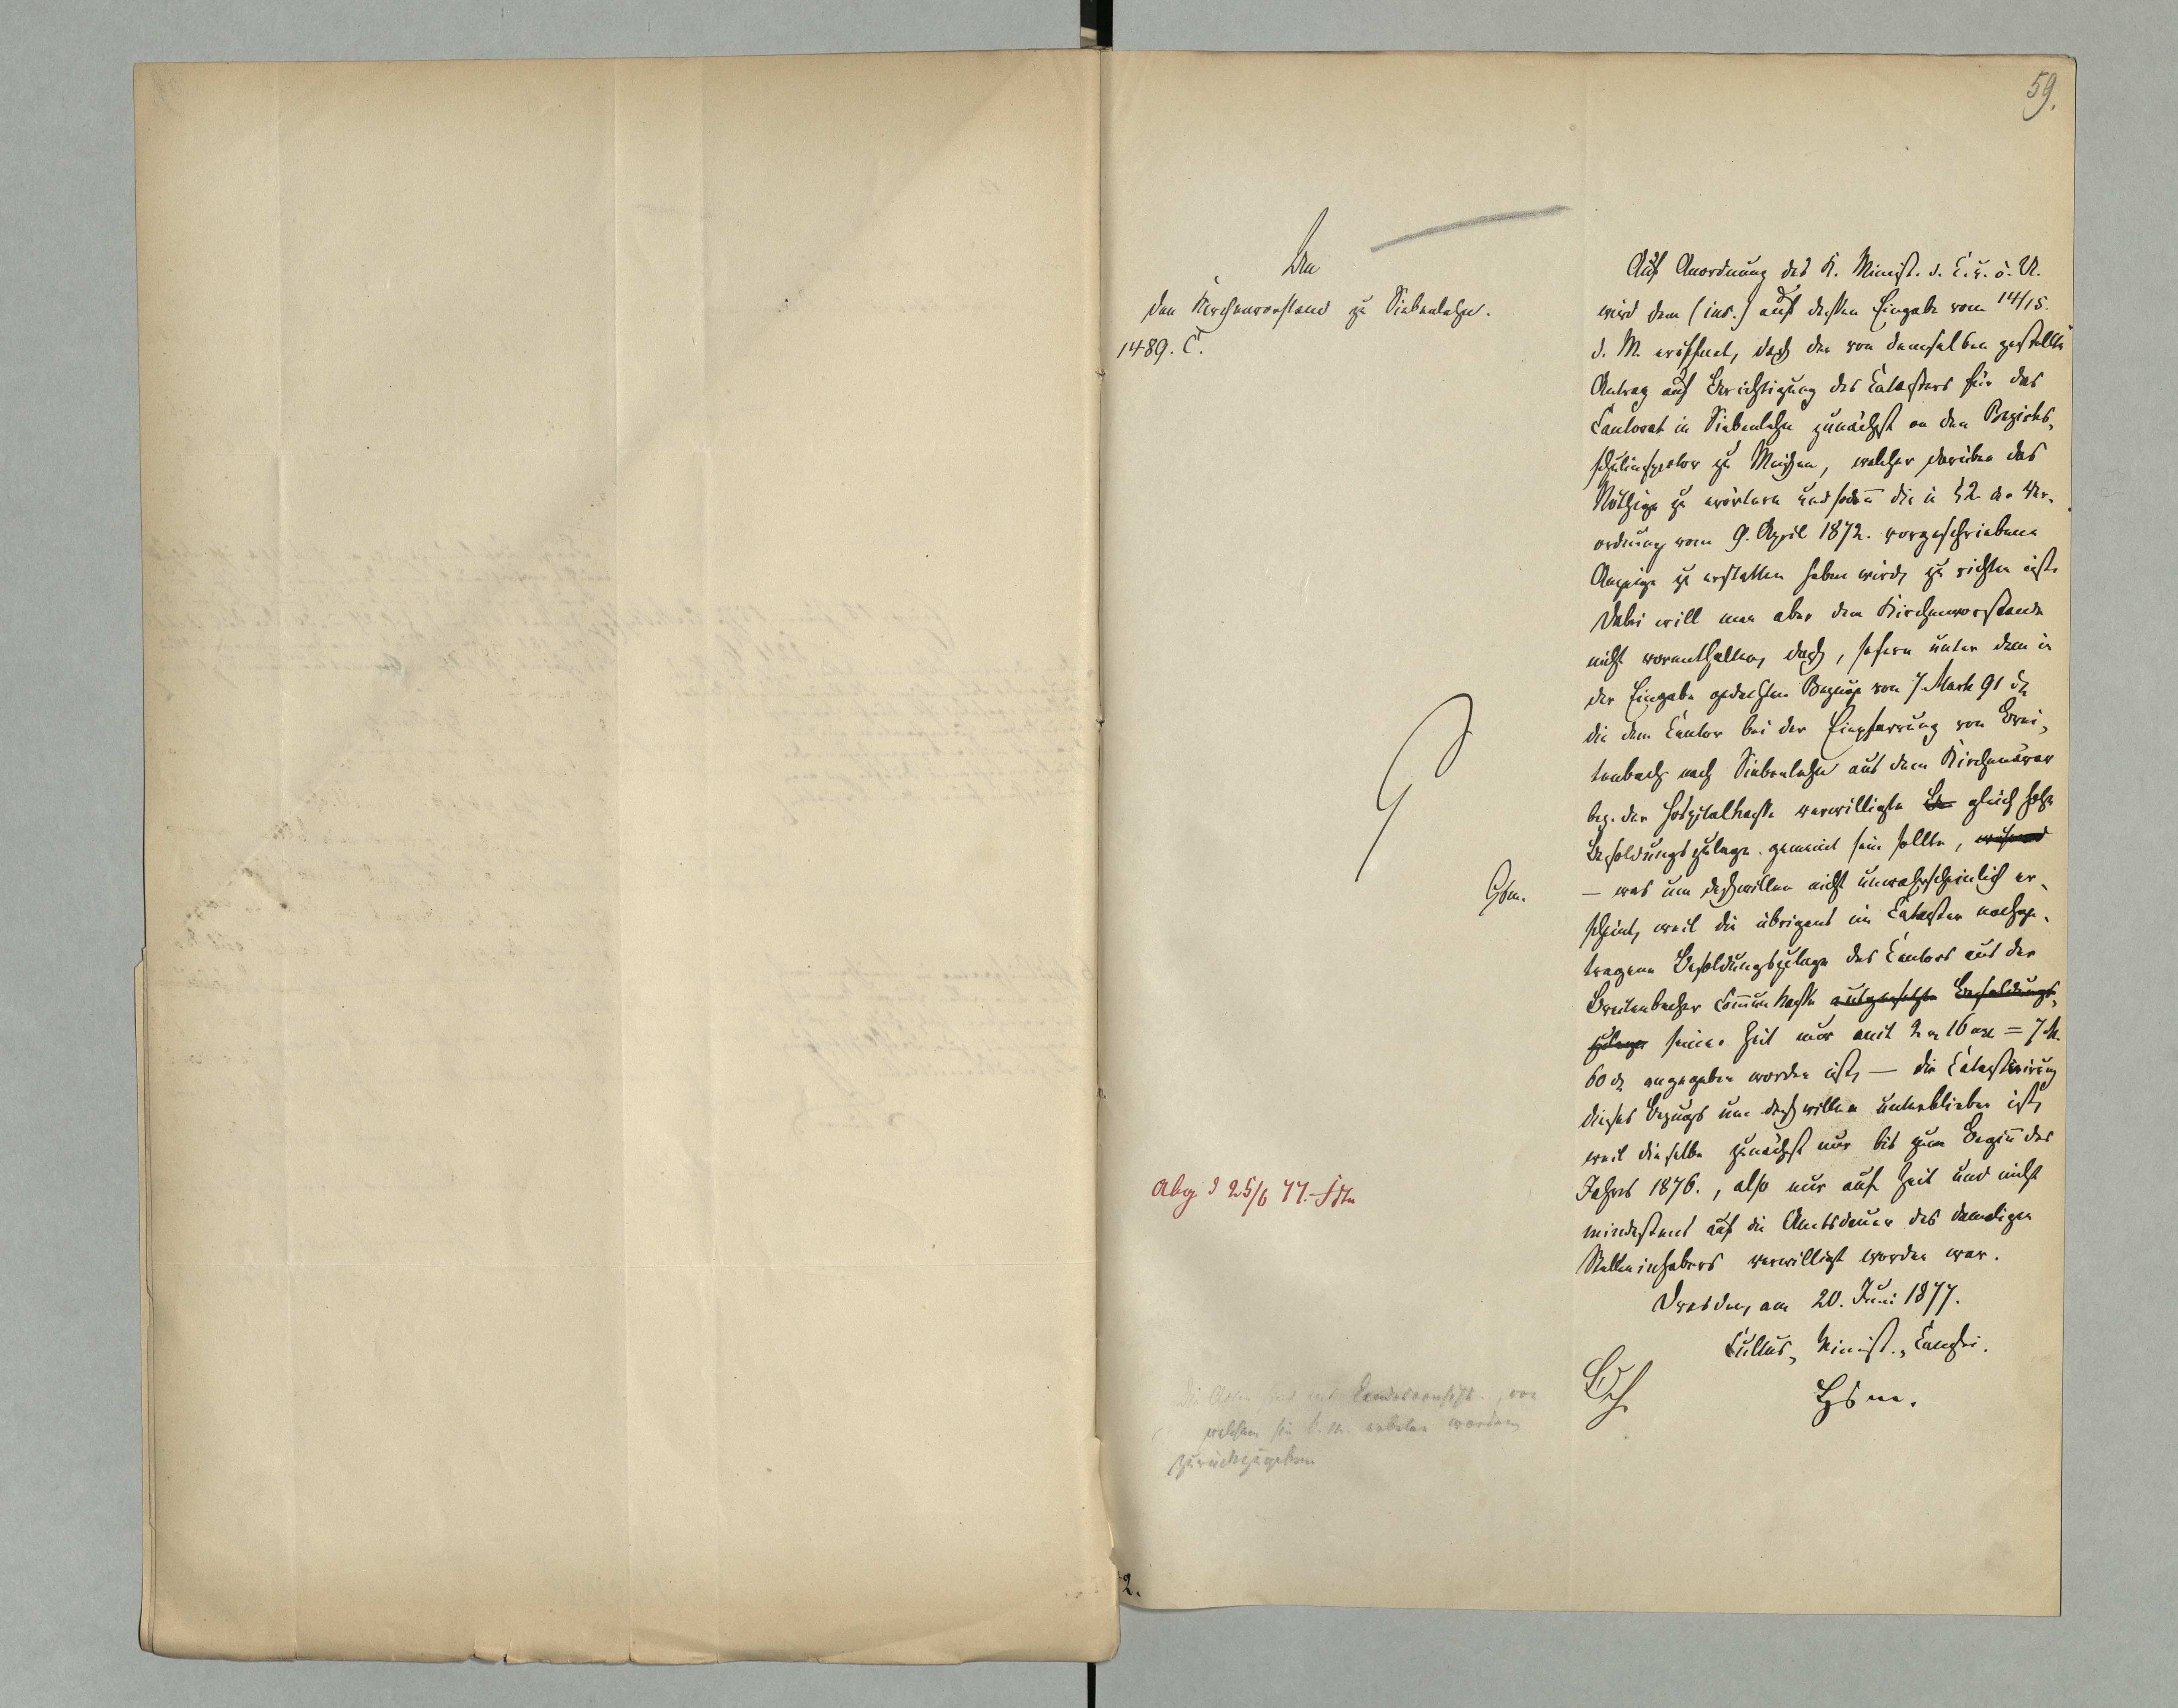 59.
An
den Kirchenvorstand zu Siebenlehn.
1489. C.
Auf Anordnung des K. Minist. d. C. u. ö. U.
wird dem (ins.) auf dessen Eingabe vom 14/15.
d. M. eröffnet, daß der von demselben gestellte
Antrag auf Berichtigung des Catasters für das
Cantorat in Siebenlehn zunächst an den Bezirks-
schulinspector zu Meißen, welcher darüber das
Nöthige zu erörtern und sodan̄ die in § 2 der Ver-
ordnung vom 9. April 1872. vorgeschriebene
Anzeige zu erstatten haben wird, zu richten ist.
Dabei will man aber dem Kirchenvorstande
nicht vorenthalten, daß, sofern unter dem in
der Eingabe gedachten Bezuge von 7 Mark 91 d
die dem Cantor bei der Einpfarrung von Brei-
tenbach nach Siebenlehn aus dem Kirchenärar
bez. der Hospitalkasse verwilligte Be gleich hohe
Besoldungszulage gemeint sein sollte,
Hbm.
— was um deßwillen nicht unwahrscheinlich er-
scheint, weil die übrigens im Cataster nachge-
tragene Besoldungszulage des Cantors aus der
Breitenbacher Com̄unkasse ausgesetzte Besoldungs-
zulage seiner Zeit nur mit 2 16 = 7 M.
60 d angegeben worden ist, — die Catastrirung
dieses Bezugs um deßwillen unterblieben ist,
weil dieselbe zunächst nur bis zum Begin̄ des
Jahres 1876., also nur auf Zeit und nicht
mindestens auf die Amtsdauer des damaligen
Stelleninhabers verwilligt worden war.
Dresden, am 20. Juni 1877.
Cultus-Minist.-Canzlei.
Hbm.
Abg. d 25/6 77.
Die Acten sind ans Landesconsist., von
welchem sie b. m. erbeten worden,
zurückzugeben
2.